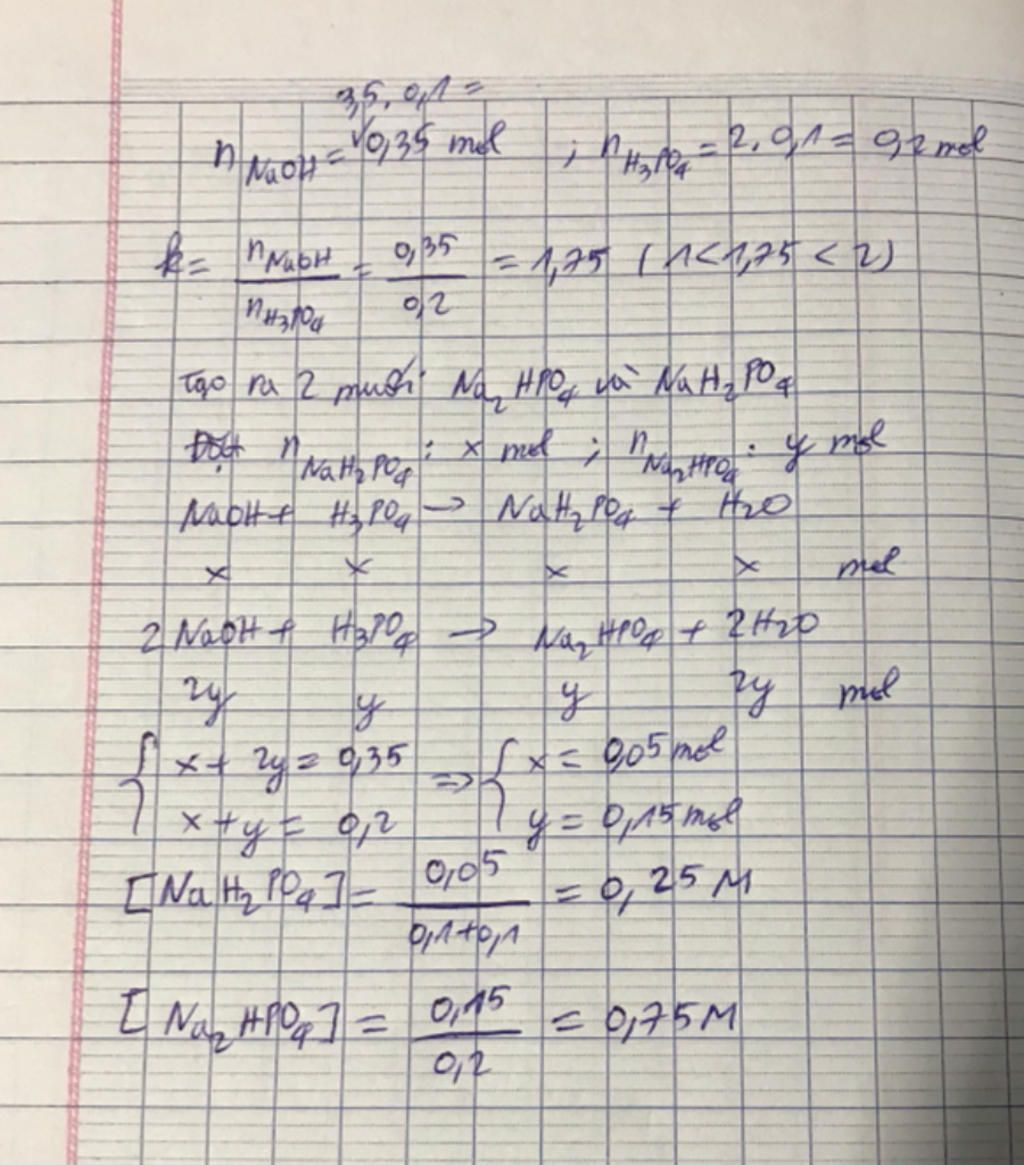 3,5. 0,1 =
n NaOH = 0,35 mol ; n H₃PO₄ = 2. 0,1 = 0,2 mol
k = n NaOH / n H₃PO₄ = 0,35 / 0,2 = 1,75 (1 < 1,75 < 2)
Tạo ra 2 muối Na₂HPO₄ và NaH₂PO₄
Đặt n NaH₂PO₄ : x mol ; n Na₂HPO₄ : y mol
NaOH + H₃PO₄ → NaH₂PO₄ + H₂O
x x x x mol
2 NaOH + H₃PO₄ → Na₂HPO₄ + 2H₂O
2y y y 2y mol
{ x + 2y = 0,35 => { x = 0,05 mol
x + y = 0,2 y = 0,15 mol
[NaH₂PO₄] = 0,05 / 0,1+0,1 = 0,25 M
[Na₂HPO₄] = 0,15 / 0,2 = 0,75M